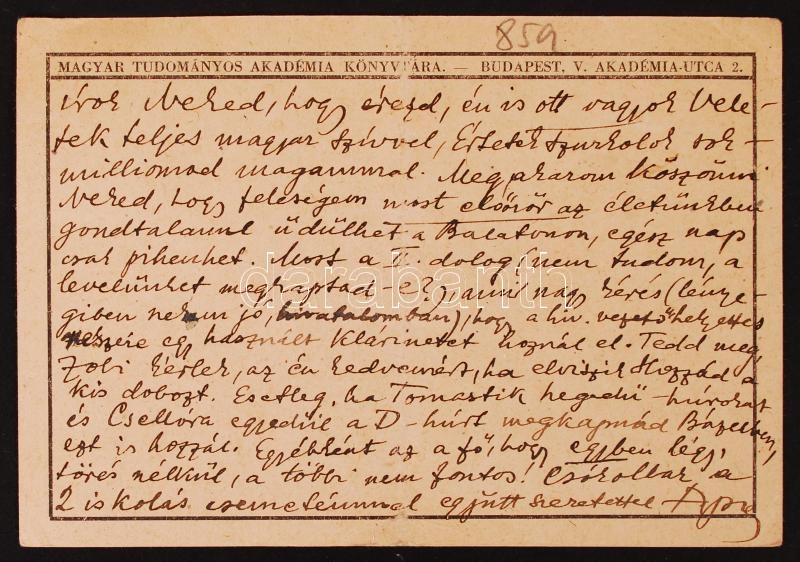 859
MAGYAR TUDOMÁNYOS AKADÉMIA KÖNYVTÁRA. — BUDAPEST, V. AKADÉMIA-UTCA 2.
írok Neked, hogy érezd, én is ott vagyok Vele-
tek teljes magyar szívvel, Értetek szurkolok sok-
milliomod magammal. Megakarom köszönni
Neked, hogy feleségem most először az életünkben
gondtalanul üdülhet a Balatonon, egész nap
csak pihenhet. Most a T. dolog (nem tudom, a
levelünket megkaptad-e?) ami nagy kérés (lénye-
giben nekem jó, hivatalomban), hogy a hiv. vezetőhelyettes
részére egy használt klárinétet hoznál el. Tedd meg
Zobi kérlek, az én kedvemért, ha elviszik Hozzád a
kis dobozt. Esetleg, ha Tomastik hegedű-húrokat
és Csellóra egyedül a D-húrt megkapnád Bázelben,
ezt is hozzál. Egyébként az a fő, hogy egyben légy,
törés nélkül, a többi nem fontos! Csókollak a
2 iskolás csemetémmel együtt szeretettel
darabanth